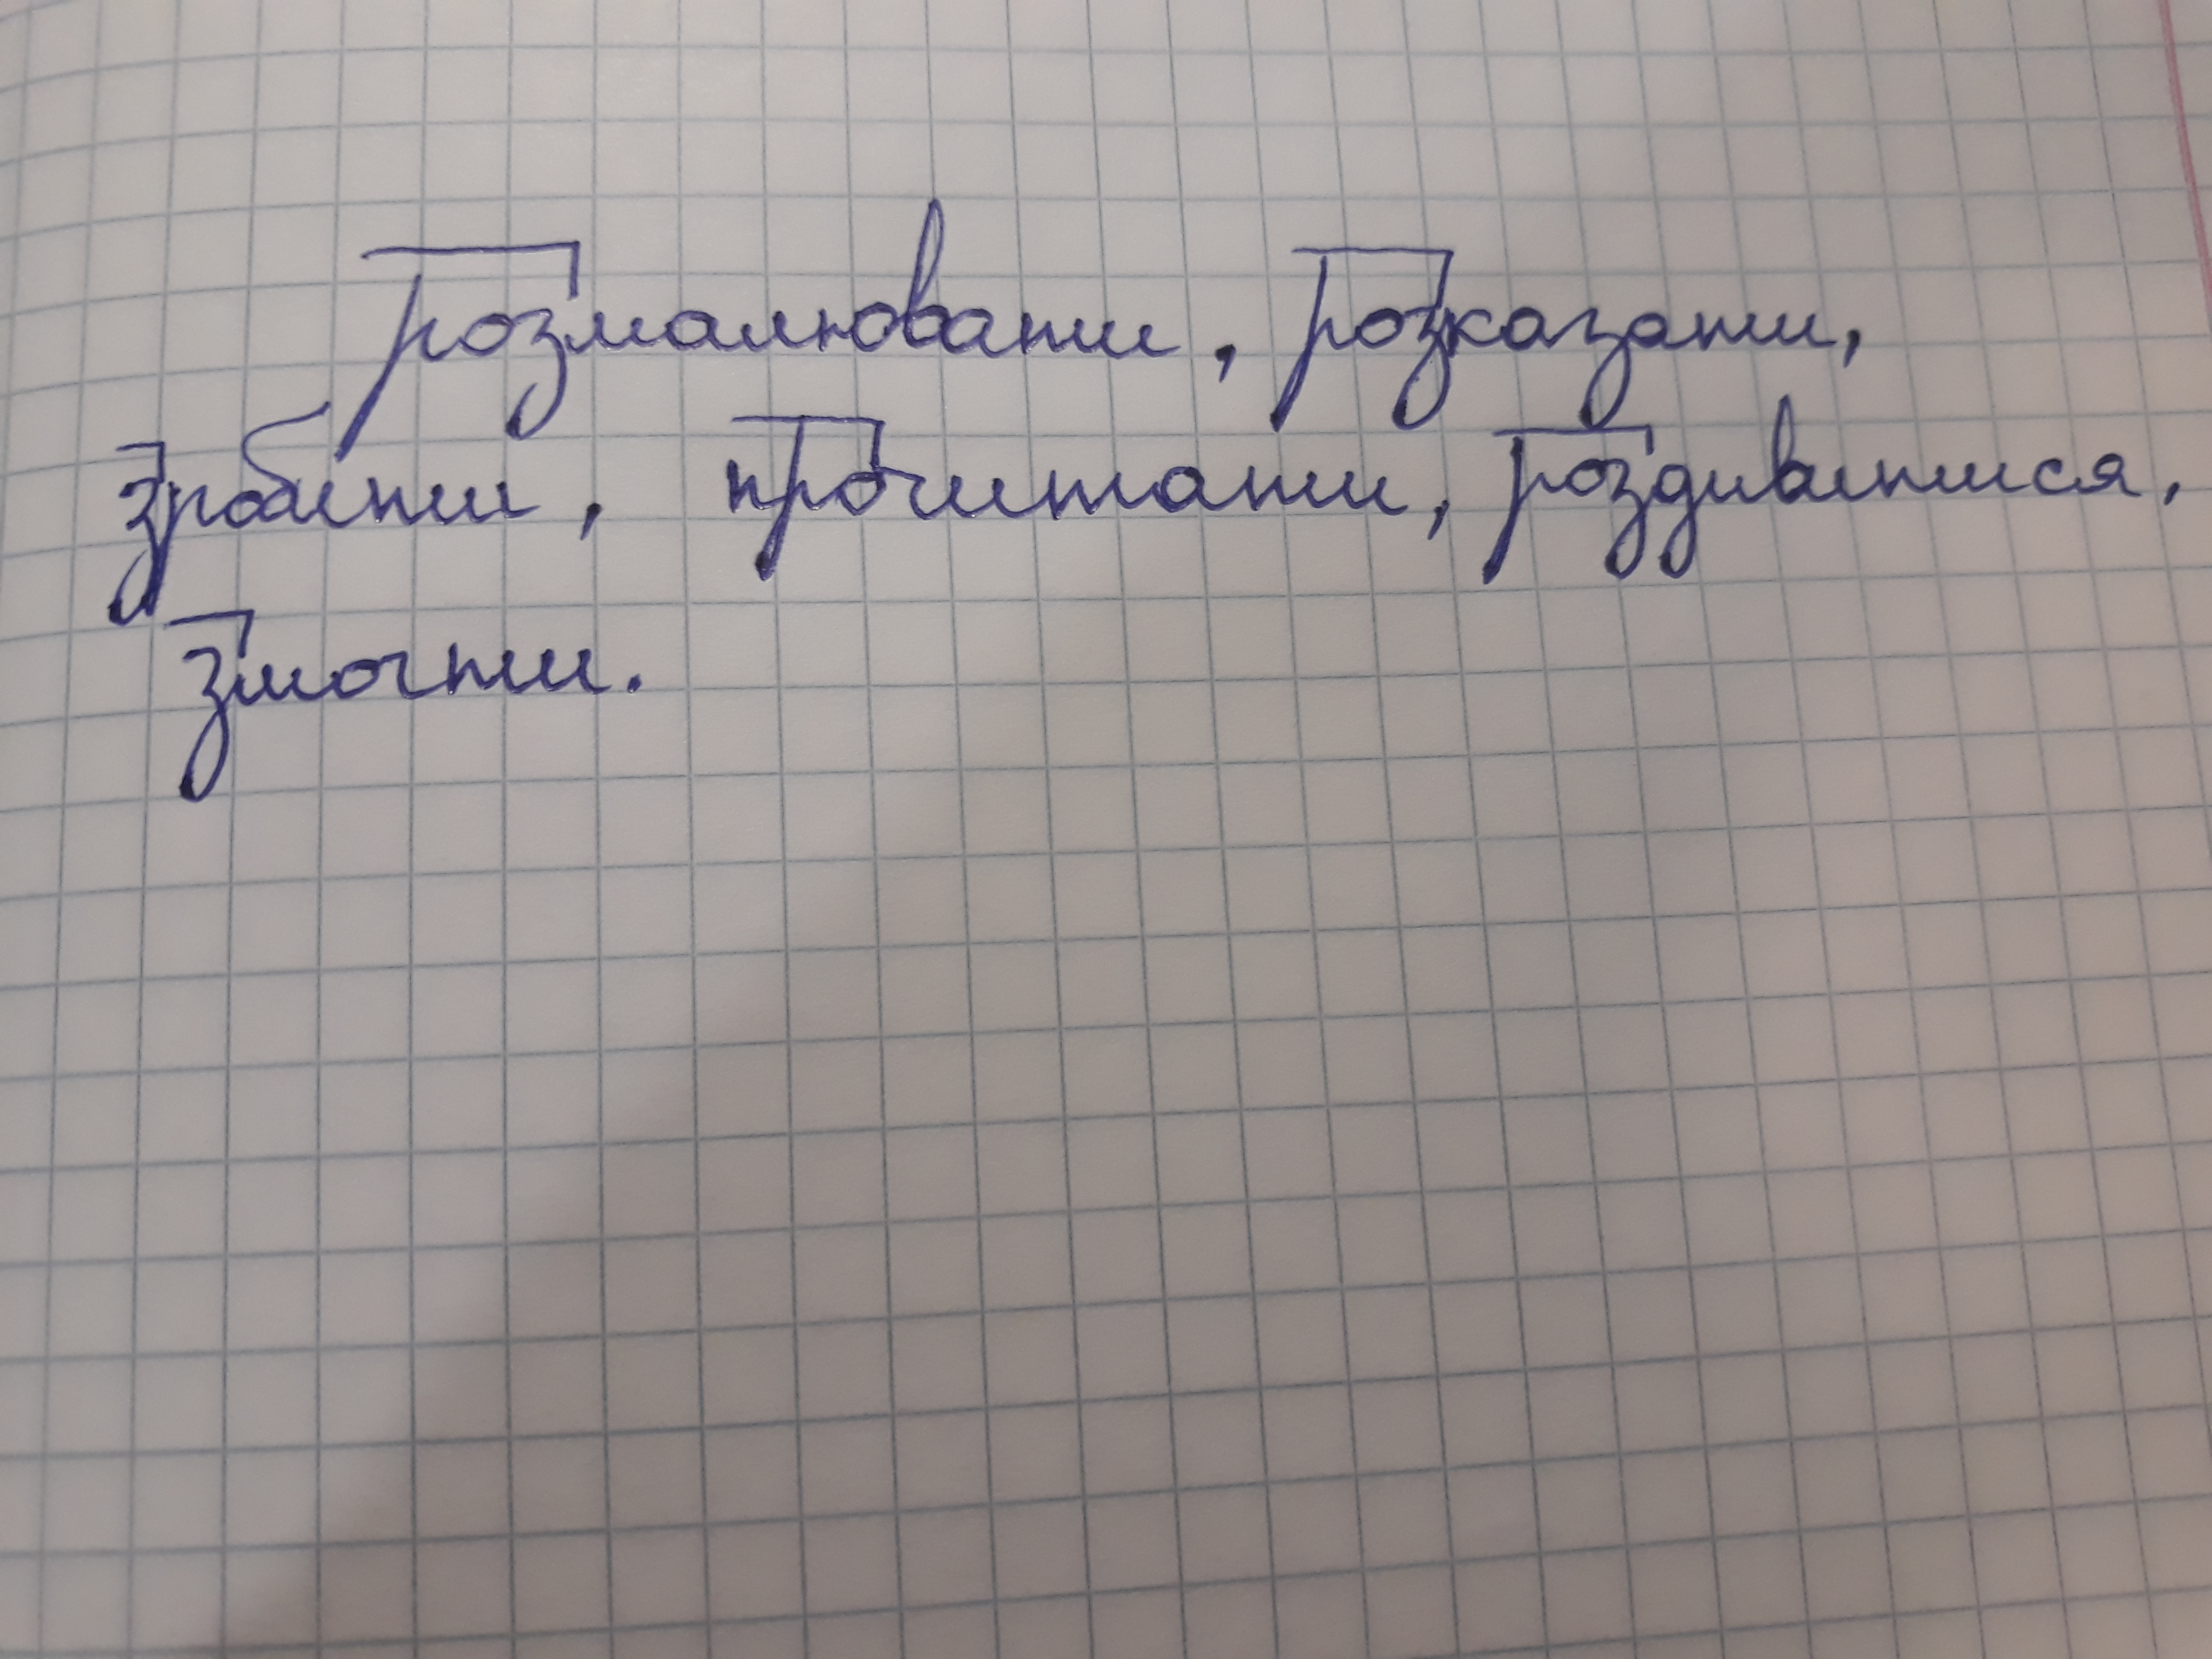 розмалювати, розказати,
зробити, прочитати, роздивитися,
змогти.